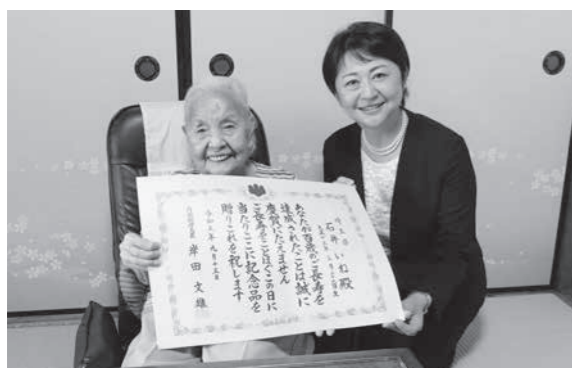 石井いね殿
あなたが百歳のご長寿を
達成されたことは誠に
慶賀にたえません
ご長寿をことほぐこの日に
当たりここに記念品を
贈りこれを祝します
令和五年九月十五日
内閣総理大臣 岸田文雄